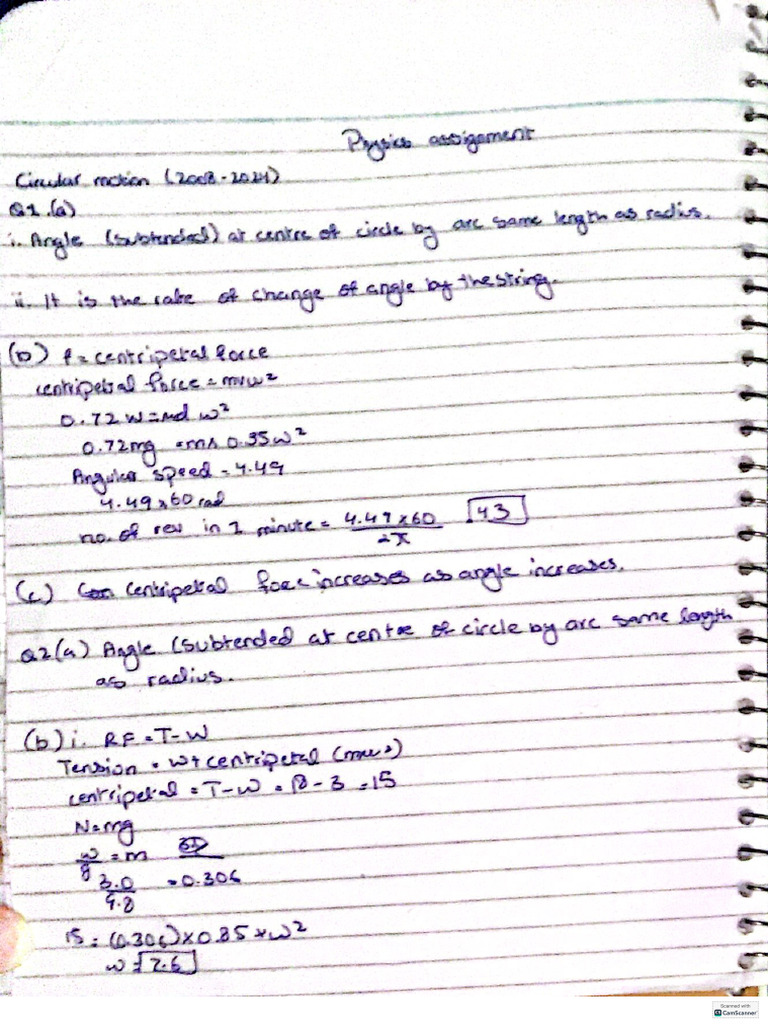 Physics assignment
Circular motion (2008-2024)
Q1.(a)
i. Angle (subtended) at centre of circle by arc same length as radius.
ii. It is the rate of change of angle by the string.
(b) f = centripetal force
centripetal force = mrw²
0.72 W = md w²
0.72mg = m× 0.35w²
Angular speed = 4.49
4.49×60 rad
no. of rev in 1 minute = 4.49×60 / 2π 43
(c) Centripetal force increases as angle increases.
Q2(a) Angle (subtended at centre of circle by arc same length
as radius.
(b) i. RF = T-W
Tension = W+ centripetal (mrw²)
centripetal = T-W = 18-3 = 15
N=mg
w/g = m
3.0/9.8 = 0.306
15 = (0.306)×0.85×w²
w = 7.6
Scanned with
CamScanner